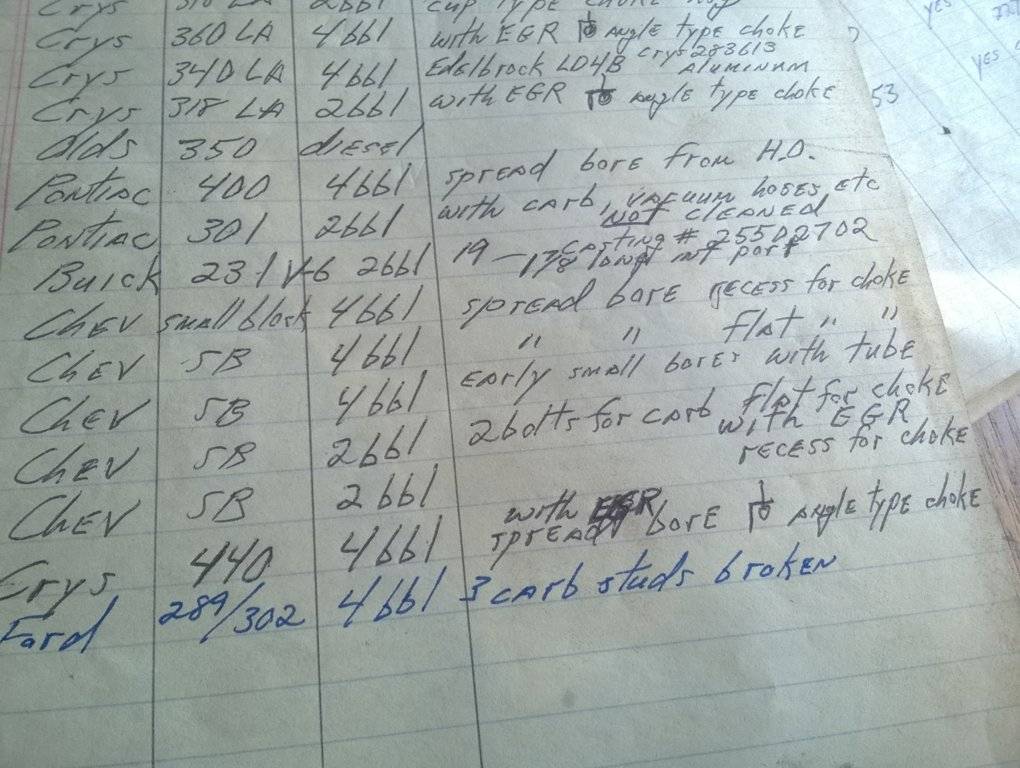 Crys 318 LA 2bbl cup type choke
Crys 360 LA 4bbl with EGR angle type choke
Crys 340 LA 4bbl Edelbrock LD4B Crys 283613 ALUMINUM
Crys 318 LA 2bbl with EGR angle type choke 53
Olds 350 diesel
Pontiac 400 4bbl spread bore from H.O.
Pontiac 301 2bbl with carb, vacuum hoses, etc NOT CLEANED
Buick 231 V-6 2bbl 19 — casting # 25502702
17/8 int port
Chev small block 4bbl spread bore recess for choke
Chev SB 4bbl " " flat " "
Chev SB 4bbl Early small bores with tube
Chev SB 2bbl 2 bolts for carb flat for choke with EGR
Chev SB 2bbl recess for choke
with EGR
Crys 440 4bbl spread bore angle type choke
Ford 289/302 4bbl 3 carb studs broken
YES
YES